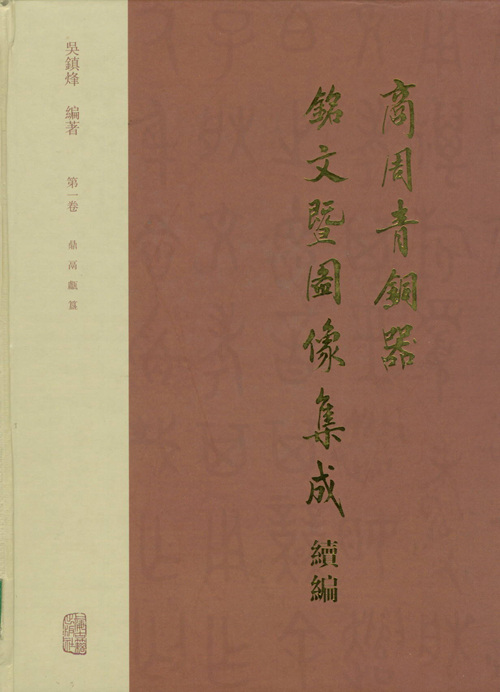 商周青銅器
銘文暨圖像集成 續編
吳鎮烽 編著 第一卷 鼎 鬲 甗 簋